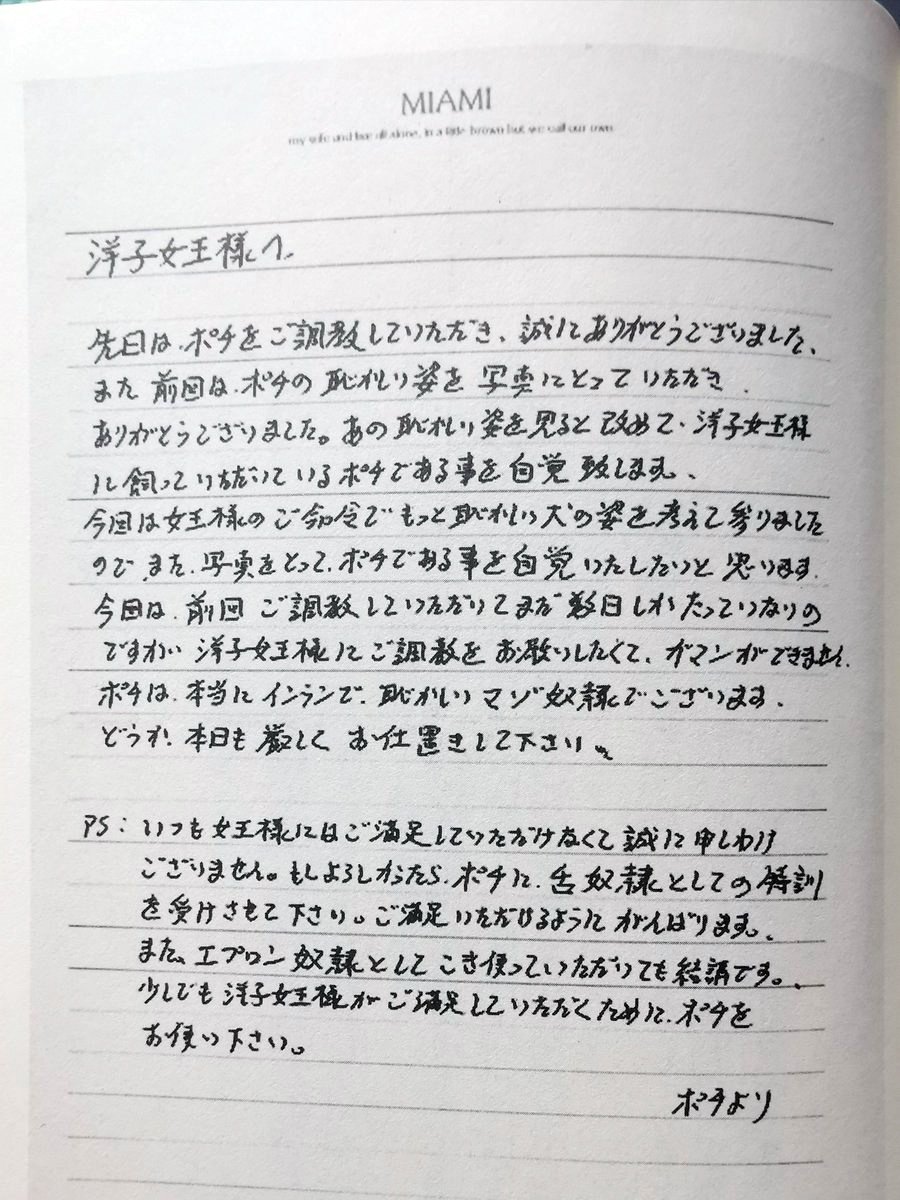 MIAMI
my wife and live all alone, in a little brown but we call our own.
洋子女王様へ
先日は、ポチをご調教していただき、誠にありがとうございました、
また前回は、ポチの恥かしい姿を写真にとっていただき
ありがとうございました。あの恥かしい姿を見ると改めて、洋子女王様
に飼っていただいているポチである事を自覚致します、
今回は女王様のご命令でもっと恥かしい犬の姿を考えて参りました
ので、また、写真をとって、ポチである事を自覚いたしたいと思います、
今回は、前回ご調教していただいてまだ数日しかたっていないの
ですが、洋子女王様にご調教をお願いしたくて、ガマンができません、
ポチは、本当にインランで、恥かしいマゾ奴隷でございます、
どうか、本日も厳しくお仕置きして下さい、
PS:いつも女王様にはご満足していただけなくて誠に申しわけ
ございません。もしよろしかったら、ポチに、舌奴隷としての特訓
を受けさせて下さい。ご満足いただけるようにがんばります。
また、エプロン奴隷としてこき使っていただいても結講です。
少しでも洋子女王様がご満足していただくために、ポチを
お使い下さい。
ポチより